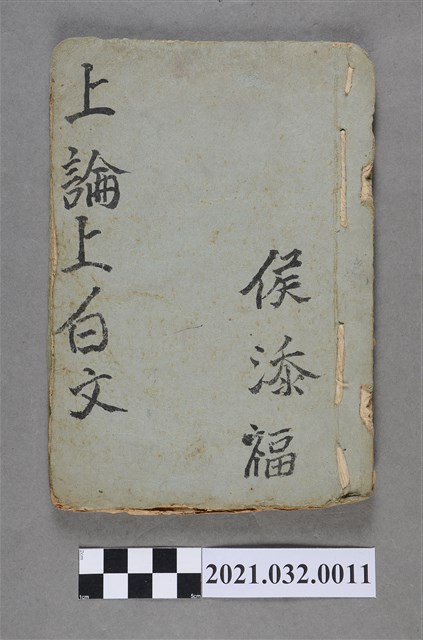 上論上白文
侯添福
2021.032.0011
1cm
5cm